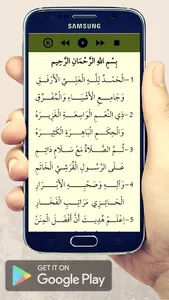 SAMSUNG
بِسْمِ اللهِ الرَّحْمَانِ الرَّحِيمِ
1 - الْحَمْدُ لِلَّهِ الْعَلِيِّ الْأَرْفَقِ
وَجَامِعِ الْأَشْيَاءِ وَالْمُفَرِّقِ
2 - ذِي النِّعَمِ الْوَاسِعَةِ الْغَزِيرَهْ
وَالْحِكَمِ الْبَاهِرَةِ الْكَثِيرَهْ
3 - ثُمَّ الصَّلَاةُ مَعْ سَلَامٍ دَائِمِ
عَلَى الرَّسُولِ الْقُرَشِيِّ الْخَاتِمِ
4 - وَآلِهِ وَصَحْبِهِ الْأَبْرَارِ
الْحَائِزِي مَرَاتِبَ الْفَخَارِ
5 - اِعْلَمْ هُدِيتَ أَنَّ أَفْضَلَ الْمِنَنْ
GET IT ON
Google Play